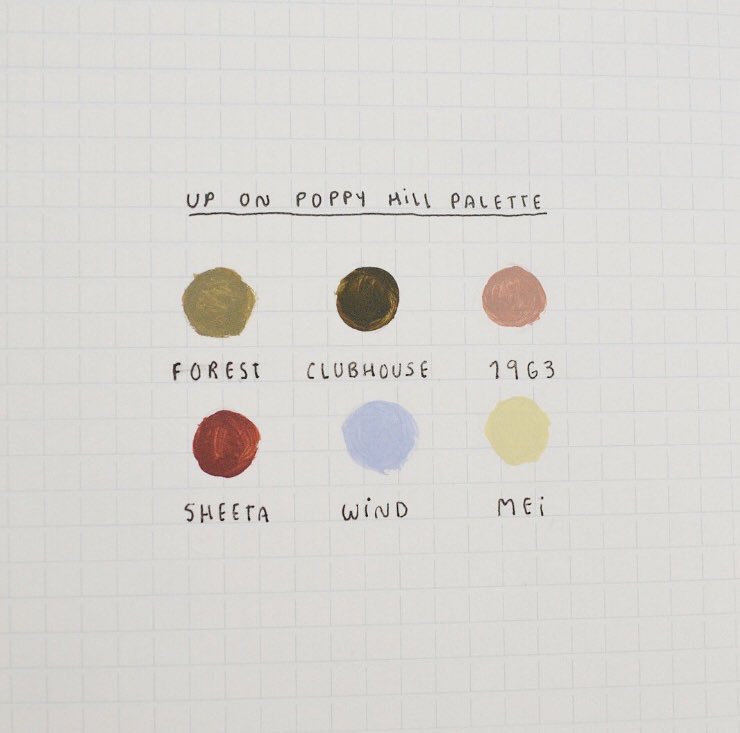 UP ON POPPY HiLL PALETTE
FOREST CLUBHOUSE 1963
SHEETA WiND MEi